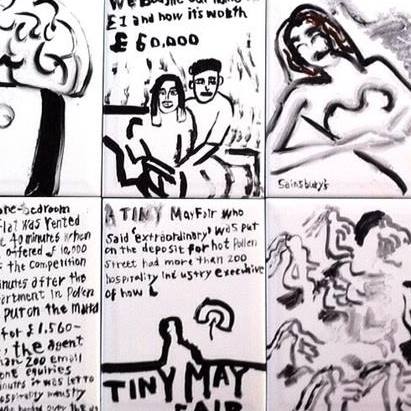 £1 and how it's worth
£60,000
Sainsbury's
one-bedroom
flat was rented
40 minutes when
offered £10,000
the competition
minutes after the
Pollen
put on the market
for £1.560-
, the agent
than 200 email
one equiries
minutes it was let to
A TINY MayFair who
said 'extraordinary' was put
on the deposit for hot Pollen
street had more than 200
hospitality ind ustry executive
of how
TINY MAY
FAIR